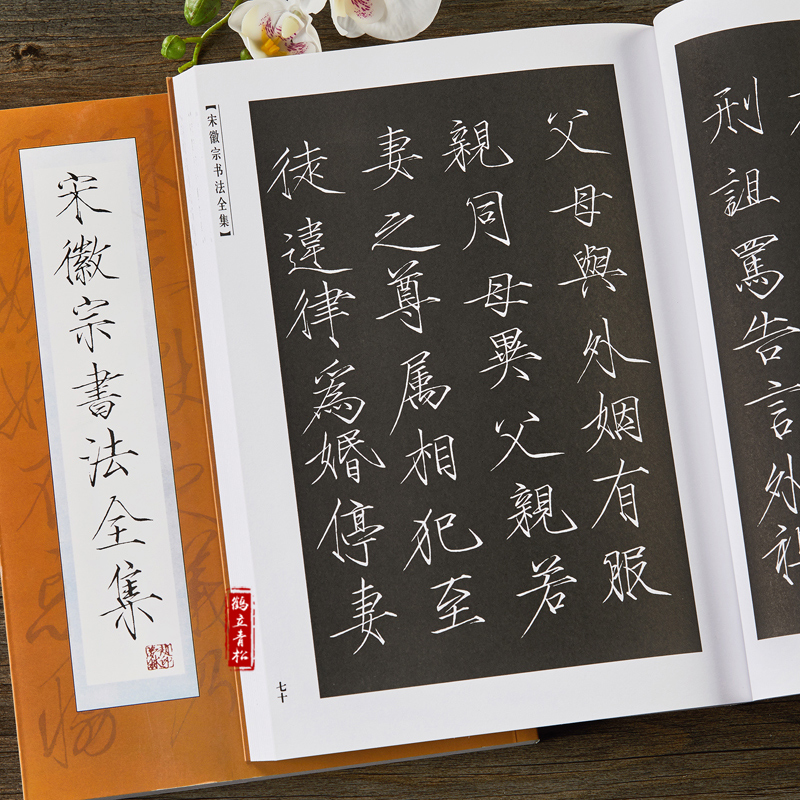 宋徽宗書法全集
【宋徽宗书法全集】
父母與外姻有服
親同母異父親若
妻之尊属相犯至
徒違律為婚停妻
七十
鹤立青松
刑詛罵告言外祖